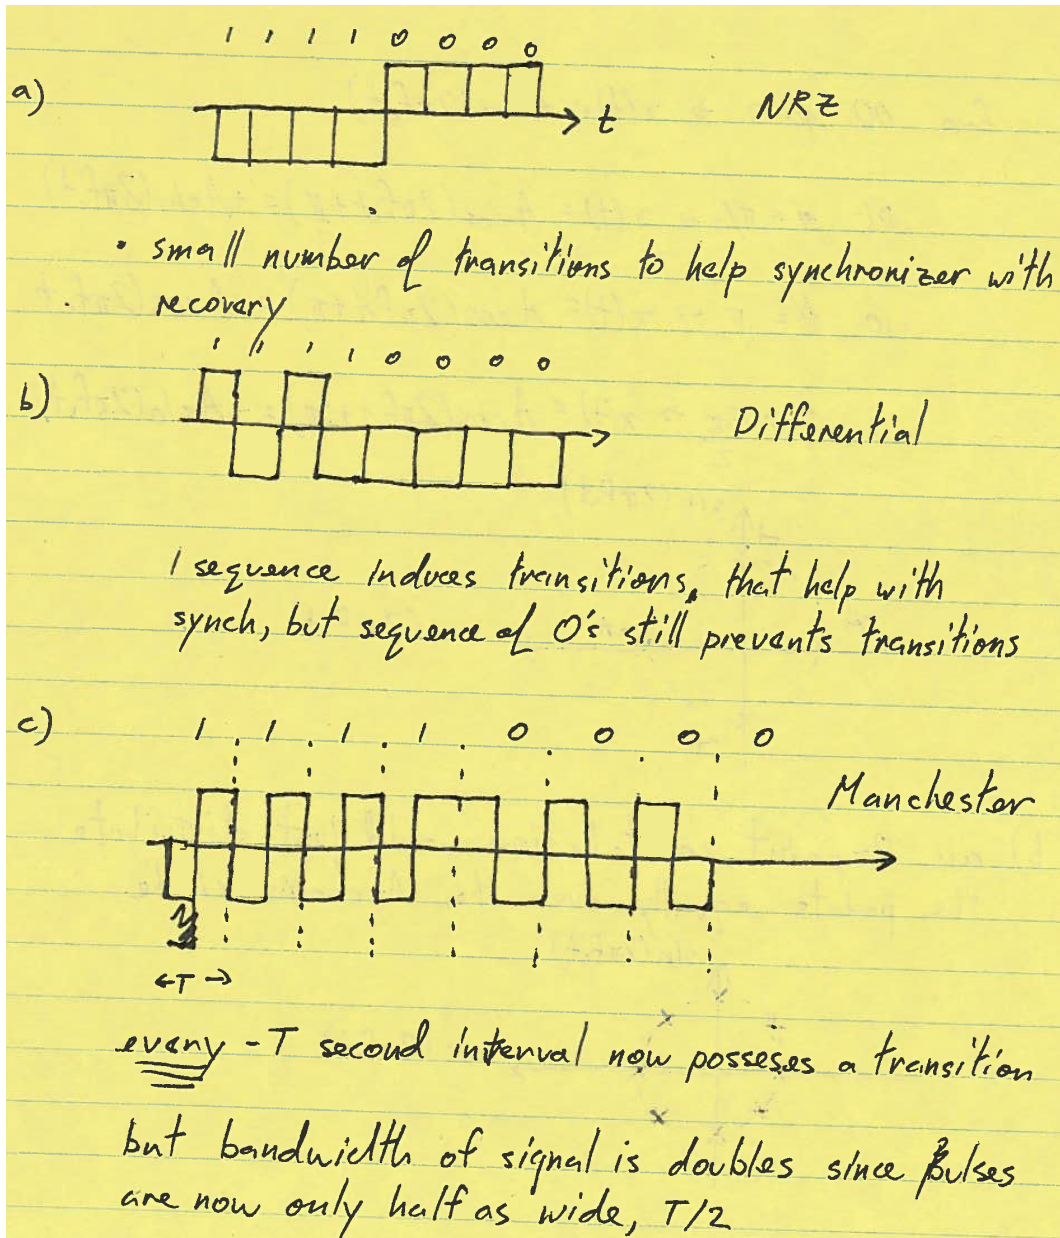 1 1 1 1 0 0 0 0
a)
t
NRZ
• small number of transitions to help synchronizer with
recovery
1 1 1 1 0 0 0 0
b)
Differential
1 sequence induces transitions, that help with
synch, but sequence of 0's still prevents transitions
c)
1 1 1 1 0 0 0 0
Manchester
←T→
every - T second interval now posseses a transition
but bandwidth of signal is doubles since pulses
are now only half as wide, T/2